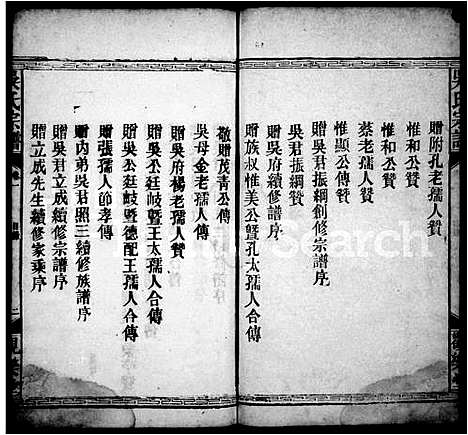 贈附孔老孺人贊
惟和公贊
惟和公贊
蔡老孺人贊
惟顯公傳贊
吳君振綱創修宗譜序
吳君振綱贊
贈吳府續修譜序
贈族叔惟美公暨孔太孺人合傳
敬贈茂青公傳
吳母金老孺人傳
贈吳府楊老孺人贊
吳公廷岐暨王太孺人合傳
吳公廷岐暨德配王孺人合傳
贈張孺人節孝傳
贈內弟吳君照三續修族譜序
贈吳君立成續修宗譜序
贈立成先生續修家乘序
吳氏宗譜